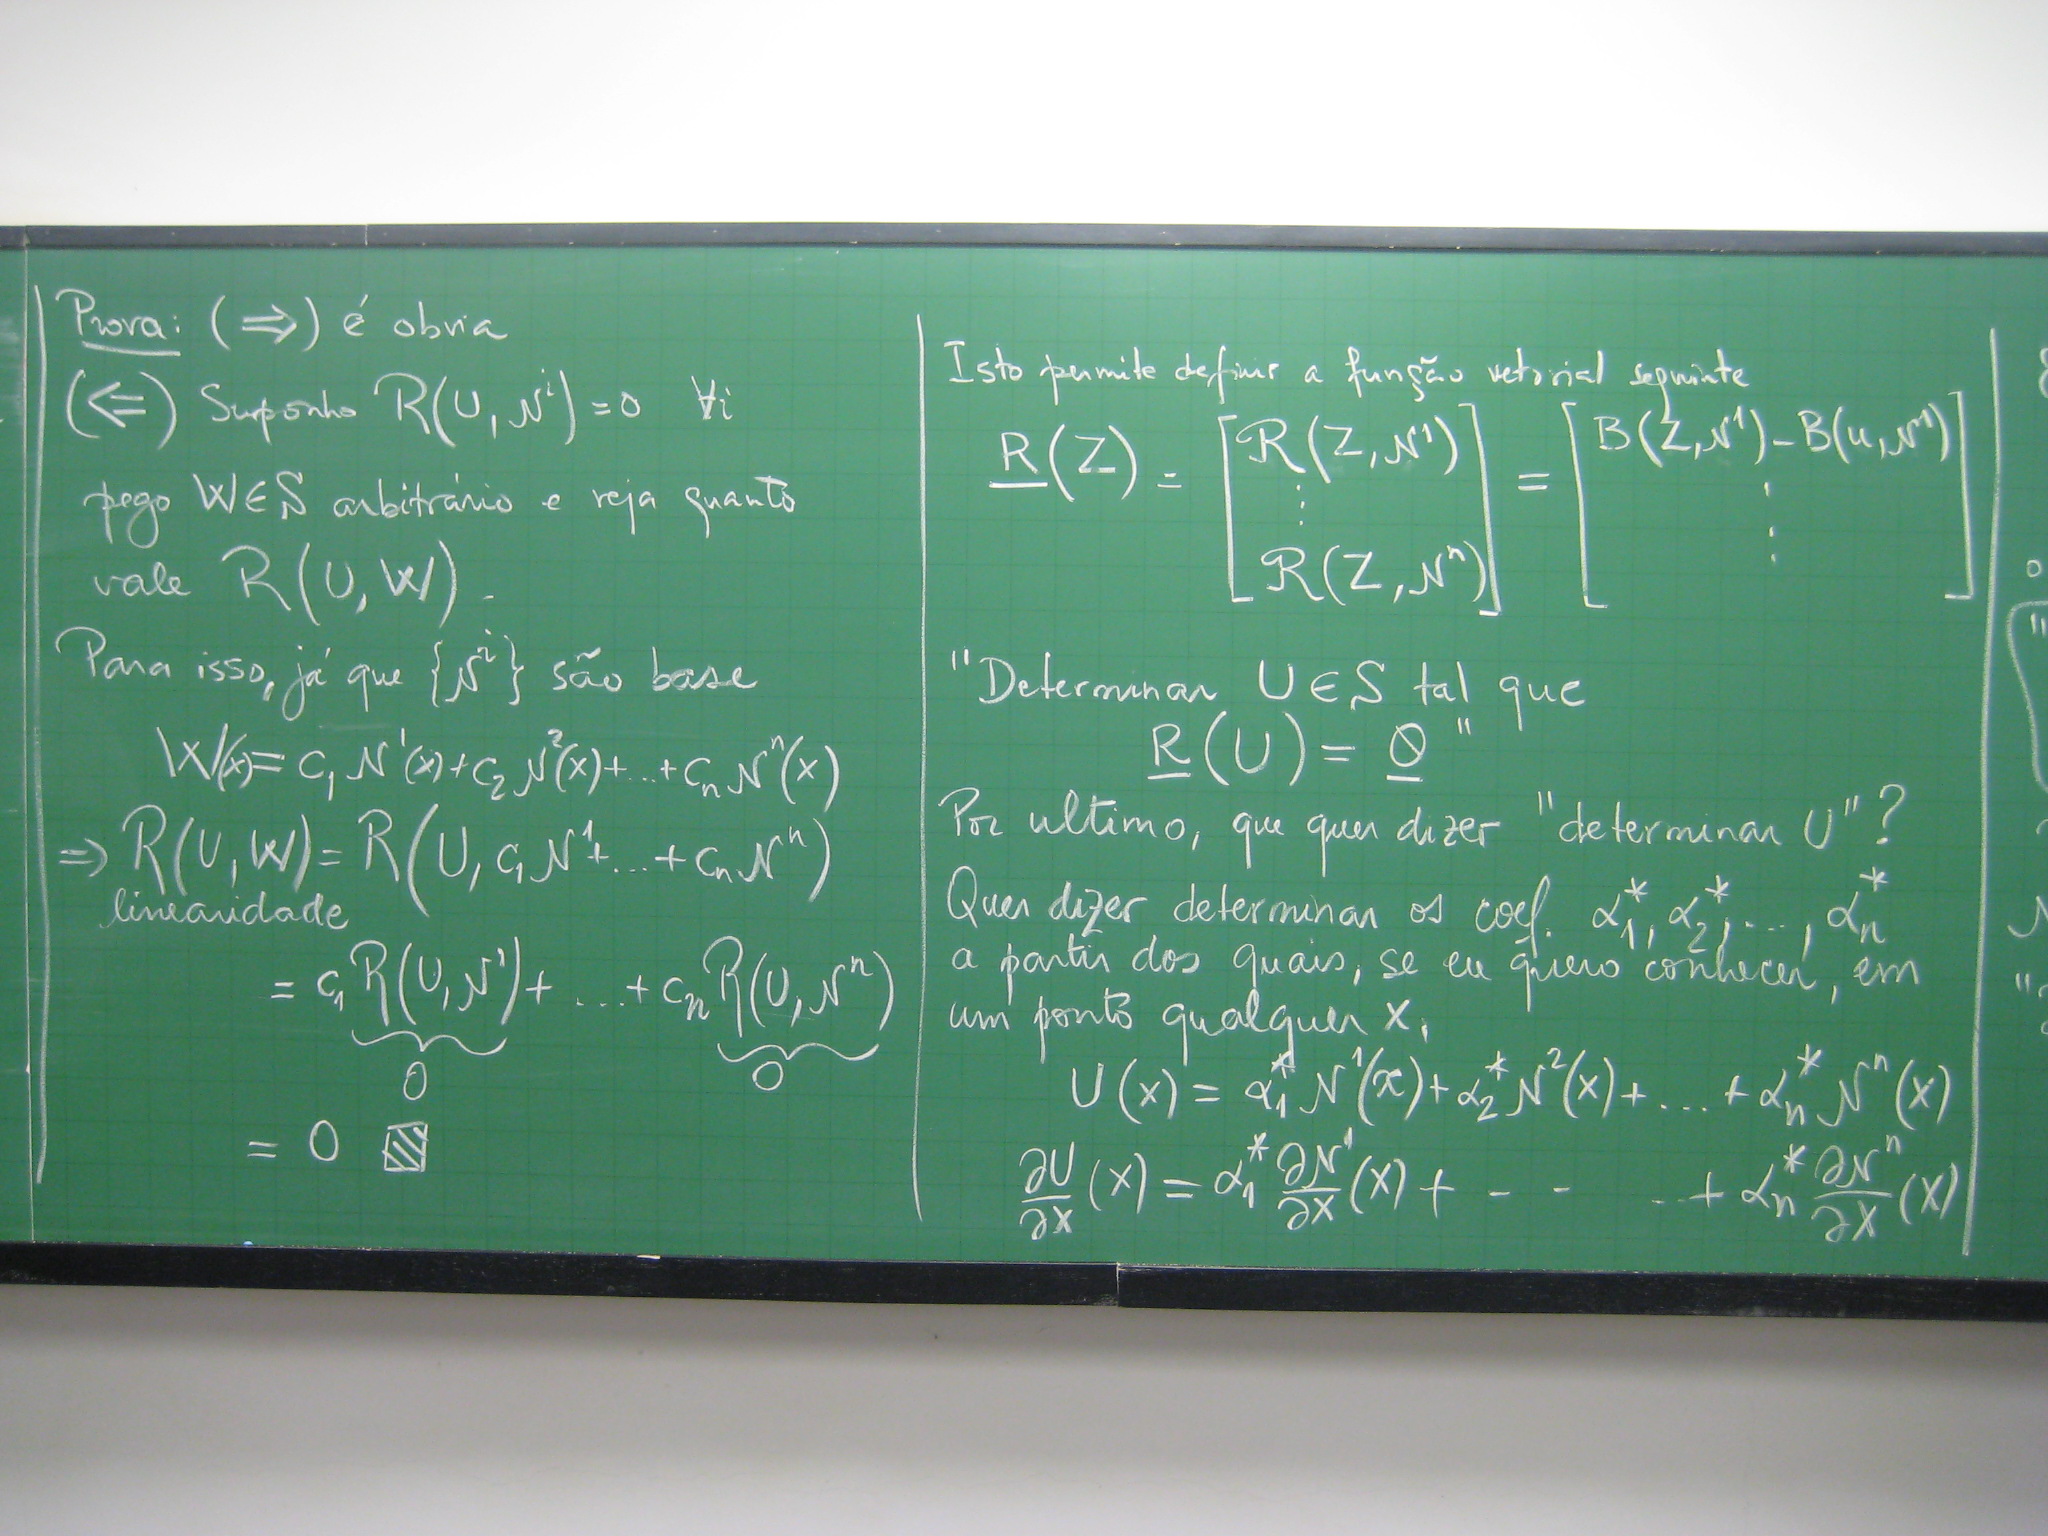 Prova: (⇒) é obvia
(⇐) Suponho R(U, N^i) = 0 ∀i
pego W ∈ S arbitrário e veja quanto
vale R(U, W).
Para isso, já que {N^i} são base
W(x) = c_1 N^1(x) + c_2 N^2(x) + ... + c_n N^n(x)
⇒ R(U, W) = R(U, c_1 N^1 + ... + c_n N^n)
linearidade
= c_1 R(U, N^1) + ... + c_n R(U, N^n)
0 0
= 0
Isto permite definir a função vetorial seguinte
R(Z) = [R(Z, N^1) ⋮ R(Z, N^n)] = [B(Z, N^1) - B(u, N^1) ⋮]
"Determinar U ∈ S tal que
R(U) = 0"
Por ultimo, que quer dizer "determinar U"?
Quer dizer determinar os coef. α_1^*, α_2^*, ..., α_n^*
a partir dos quais, se eu quero conhecer, em
um ponto qualquer x,
U(x) = α_1^* N^1(x) + α_2^* N^2(x) + ... + α_n^* N^n(x)
∂U/∂x (x) = α_1^* ∂N^1/∂x (x) + - - ... + α_n^* ∂N^n/∂x (x)